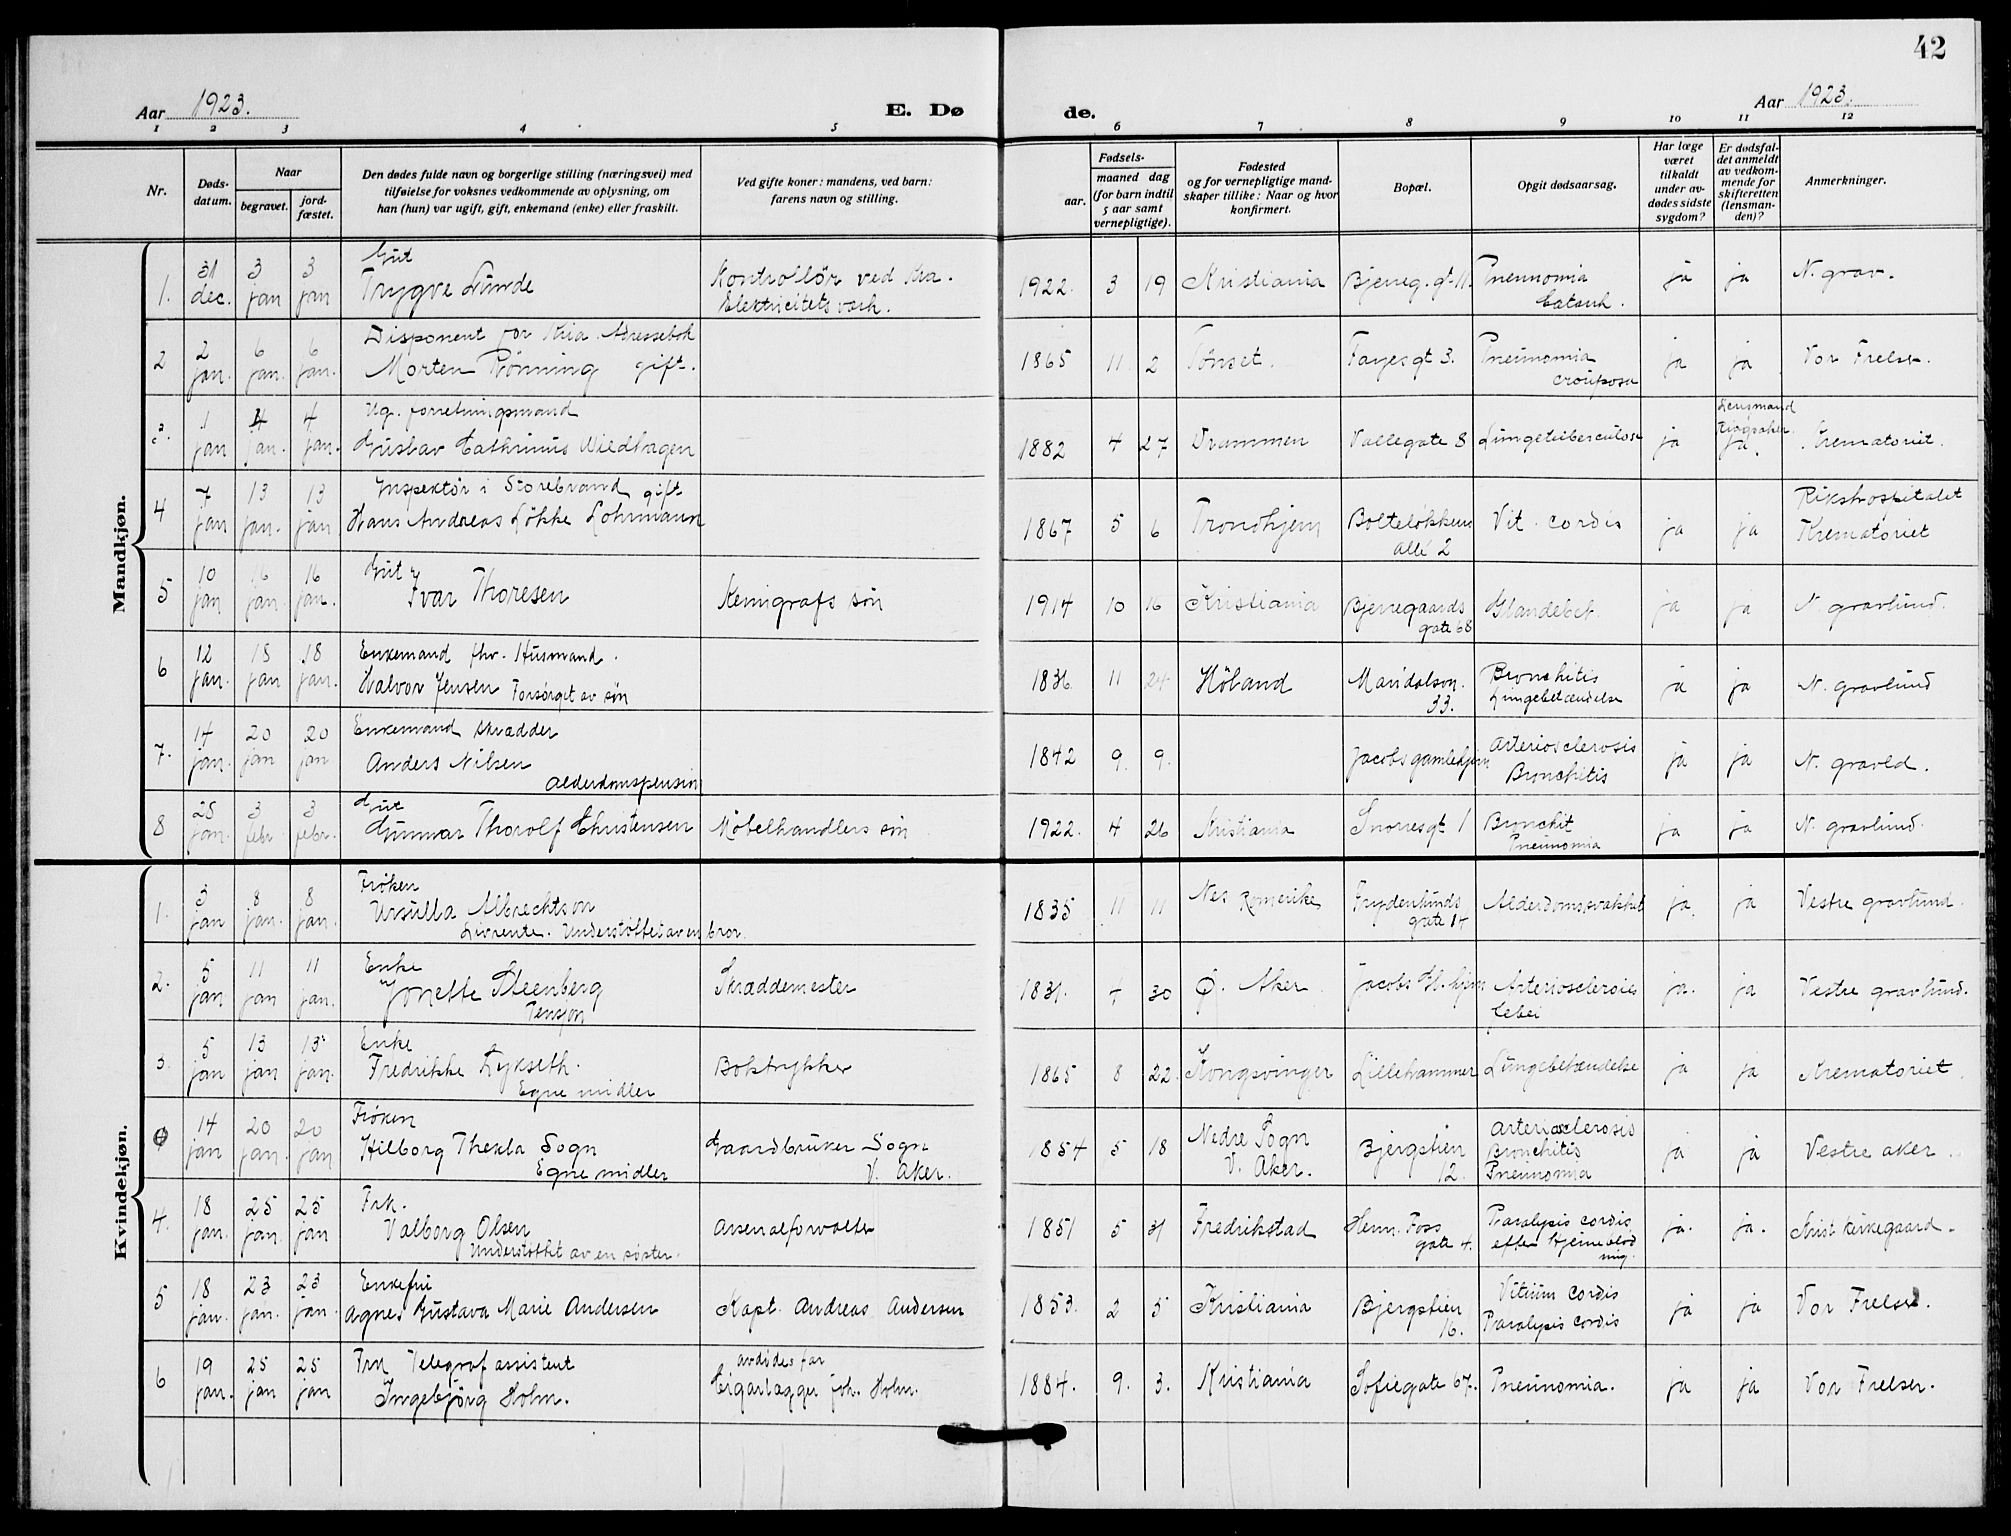 42
Aar 1923.
E. Dø
de.
Aar 1923.
1 2 3 4 5 6 7 8 9 10 11 12
Nr.
Døds-
datum.
Naar
begravet.
jord-
fæstet.
Den dødes fulde navn og borgerlige stilling (næringsvei) med
tilføielse for voksnes vedkommende av oplysning, om
han (hun) var ugift, gift, enkemand (enke) eller fraskilt.
Ved gifte koner: mandens, ved barn:
farens navn og stilling.
Fødsels-
aar.
maaned dag
(for barn indtil
5 aar samt
vernepligtige).
Fødested
og for vernepligtige mand-
skaper tillike: Naar og hvor
konfirmert.
Bopæl.
Opgit dødsaarsag.
Har læge
været
tilkaldt
under av-
dødes sidste
sygdom?
Er dødsfal-
det anmeldt
av vedkom-
mende for
skifteretten
(lensman-
den)?
Anmerkninger.
Mandkjøn.
1. 31 dec. 3 jan 3 jan
Gut
Trygve Lunde
Kontrollør ved Kra.
Elektricitetsverk.
1922. 3 19 Kristiania Bjerreg. gt. 11. Pneumonia
ja ja N. grav.
2 2 jan. 6 jan. 6 jan.
Disponent for Kria. Adressebok
Morten Rønning gift.
1865 11 2 Tønset. Fayesgt 3. Pneumonia
crouposa
ja ja Vor Frelser.
3. 1 jan 4 jan. 4 jan.
Ug. forretningsmand
Gustav Cathrinus Wildhagen
1882 4 27 Drammen Vallegate 8 Lungetuberculose ja
Lensmand
Ringsaker
ja. Krematoriet.
4 7 jan 13 jan. 13 jan
Inspektør i Storebrand gift
Hans Andreas Løkke Lohrmann
1867 5 6 Trondhjem Bolteløkkens
alle 2
Vit. cordis ja ja
Rikshospitalet
Krematoriet
5 10 jan 16 jan. 16 jan.
Gut
Ivar Thoresen
Kemigrafs søn
1914 10 16 Kristiania Bjerregaards
gate 68
ja ja N. gravlund.
6 12 jan. 18 jan 18 jan.
Enkemand fhv. Husmand.
Halvor Jensen Forsørget av søn
1836 11 24 Høland Maridalsvn.
33.
Bronchitis
Lungebetændelse
ja ja N. gravlund
7. 14 jan. 20 jan 20 jan
Enkemand skrædder
Anders Nilsen
Alderdomspension
1842 9. 9. Jacobs gamlehjem
Arteriosclerosis
Bronchitis
ja ja N. gravld.
8 25 jan. 3 febr. 3 febr.
Gut
Gunnar Thorolf Christensen Møbelhandlers søn
1922. 4 26 Kristiania Snorresgt 1 Bronchit
Pneumonia
ja ja N. gravlund.
Kvindekjøn.
1. 3 jan 8 jan. 8 jan.
Frøken
Ursulla Albrechtson
Livrente. Understøttet av en bror.
1835 11 11 Nes Romerike Frydenlunds
gate 14
Alderdomssvakhet ja. ja Vestre gravlund.
2. 5 jan 11 jan 11 jan.
Enke
Jonette Steenberg
Pensjon
Skræddemester
1831. 7 30 Ø. Aker Jacobs Gl. hjem Arteriosclerosis
ja. ja Vestre gravlund.
3. 5 jan 13 jan 13 jan.
Enke
Fredrikke Lykseth.
Egne midler
Boktrykker
1865 8 22. Kongsvinger Lillehammer Lungebetændelse ja ja Krematoriet.
14 jan 20 jan. 20 jan
Frøken
Hilborg Thekla Sogn
Egne midler
Gaardbruker Sogn
V. Aker.
1854 5 18 Nedre Sogn
V. Aker.
Bjergstien
12.
Arteriosclerosis
Bronchitis
Pneumonia
ja ja Vestre aker.
4. 18 jan. 25 jan. 25 jan
Frk.
Valborg Olsen
Understøttet av en søster.
Arsenalforvalter
1851 5 31 Fredrikstad Herm. Foss
gate 4.
Paralysis cordis
efter hjerneblød
ning.
ja. ja. Krist kirkegaard.
5 18 jan. 23 jan. 23 jan.
Enkefru
Agnes Gustava Marie Andersen Kapt. Andreas Andersen
1853. 2 5 Kristiania Bjergstien
16.
Vitium cordis
Paralysis cordis
ja ja Vor Frelser.
6 19 jan. 25 jan 25 jan
Frk Telegrafassistent
Ingebjörg Holm.
avdødes far
Cigarlægger Joh. Holm.
1884. 9. 3. Kristiania Sofiegate 67. Pneumonia. ja ja Vor Frelser.